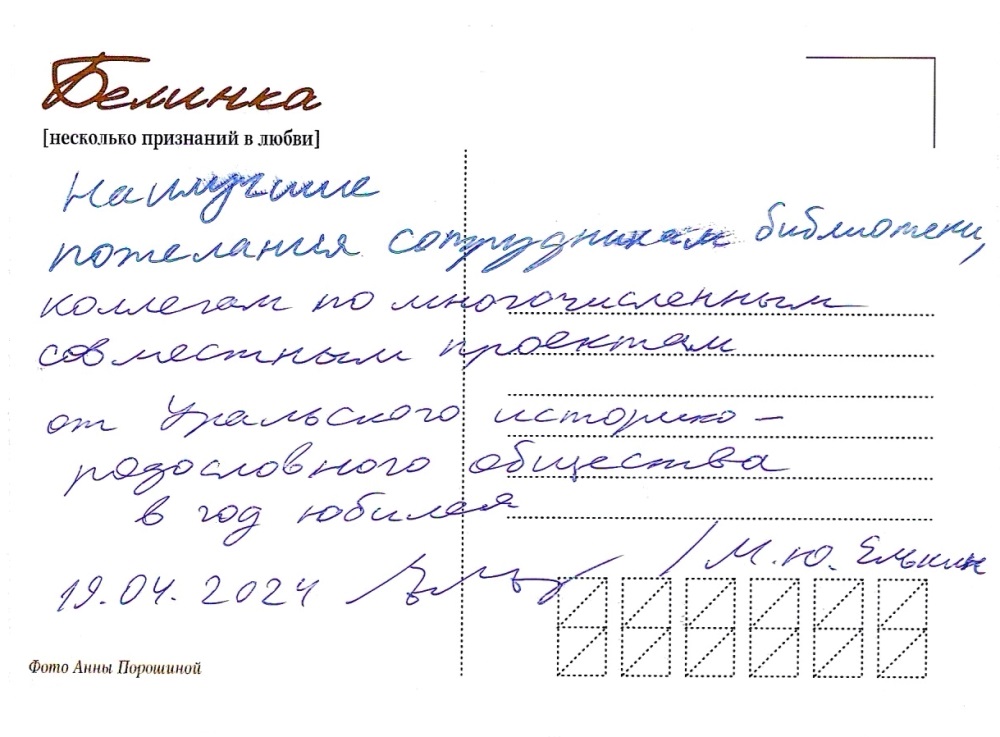 Белинка
[несколько признаний в любви]
Наилучшие
пожелания сотрудникам библиотеки,
коллегам по многочисленным
совместным проектам
от Уральского историко-
родословного общества
в год юбилея
/ М. Ю. Елькин
19.04.2024
Фото Анны Порошиной